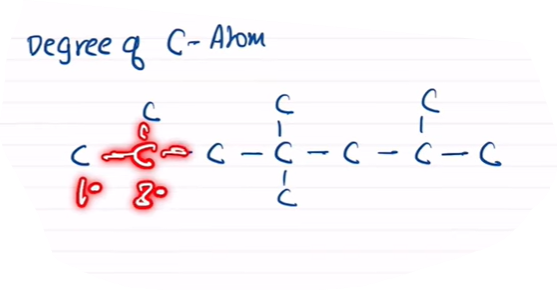 Degree of C-Atom
C C C
C - C - C - C - C - C - C
1° 3° C